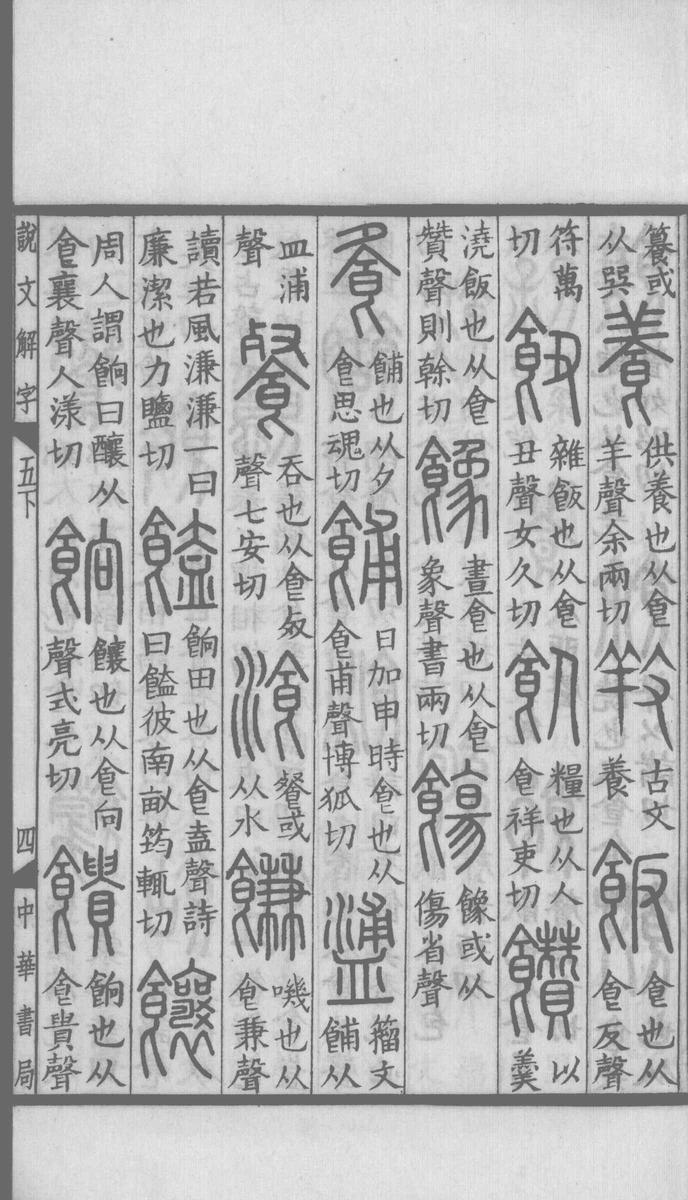 籑或从巽養供養也从食羊聲余兩切𢼝古文養飯食也从食反聲
符萬切雜飯也从食丑聲女久切飤糧也从人食祥吏切饡以羹
澆飯也从食贊聲則榦切𩜋晝食也从食象聲書兩切𩜋或从傷省聲
飧餔也从夕食思魂切餔日加申時食也从食甫聲博狐切籒文餔从
皿浦聲餐吞也从食𣦼聲七安切湌餐或从水䭑嘰也从食兼聲
讀若風溓溓一曰廉潔也力鹽切饁餉田也从食盍聲詩曰饁彼南畝筠輒切饟
周人謂餉曰釀从食襄聲人漾切餉饟也从食向聲式亮切饋餉也从食貴聲
說文解字 五下 四 中華書局